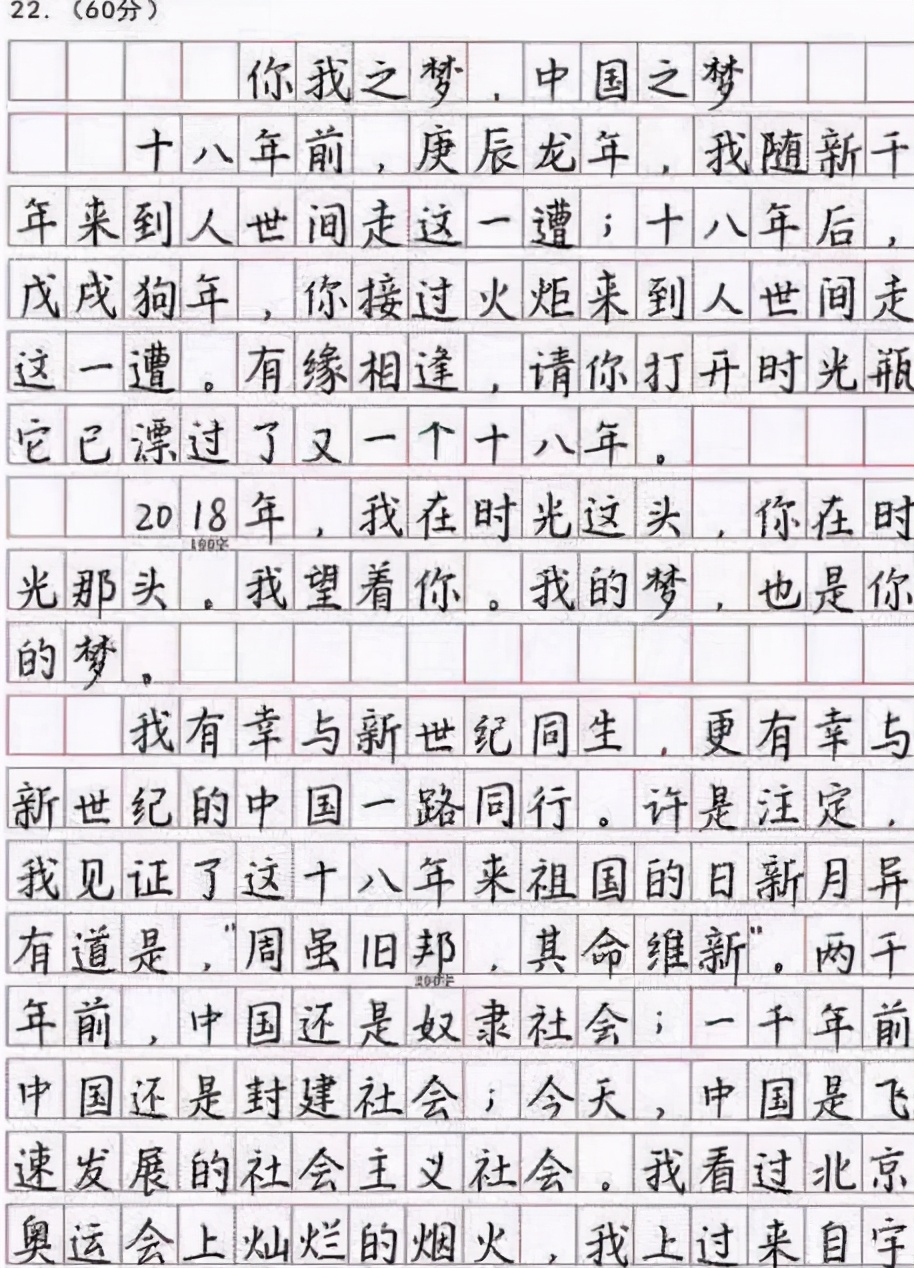 22.（60分）
你我之梦，中国之梦
十八年前，庚辰龙年，我随新千
年来到人世间走这一遭；十八年后，
戊戌狗年，你接过火炬来到人世间走
这一遭。有缘相逢，请你打开时光瓶
它已漂过了又一个十八年。
2018年，我在时光这头，你在时
100字
光那头。我望着你。我的梦，也是你
的梦。
我有幸与新世纪同生，更有幸与
新世纪的中国一路同行。许是注定，
我见证了这十八年来祖国的日新月异
有道是，“周虽旧邦，其命维新”。两千
200字
年前，中国还是奴隶社会；一千年前
中国还是封建社会；今天，中国是飞
速发展的社会主义社会。我看过北京
奥运会上灿烂的烟火，我上过来自宇